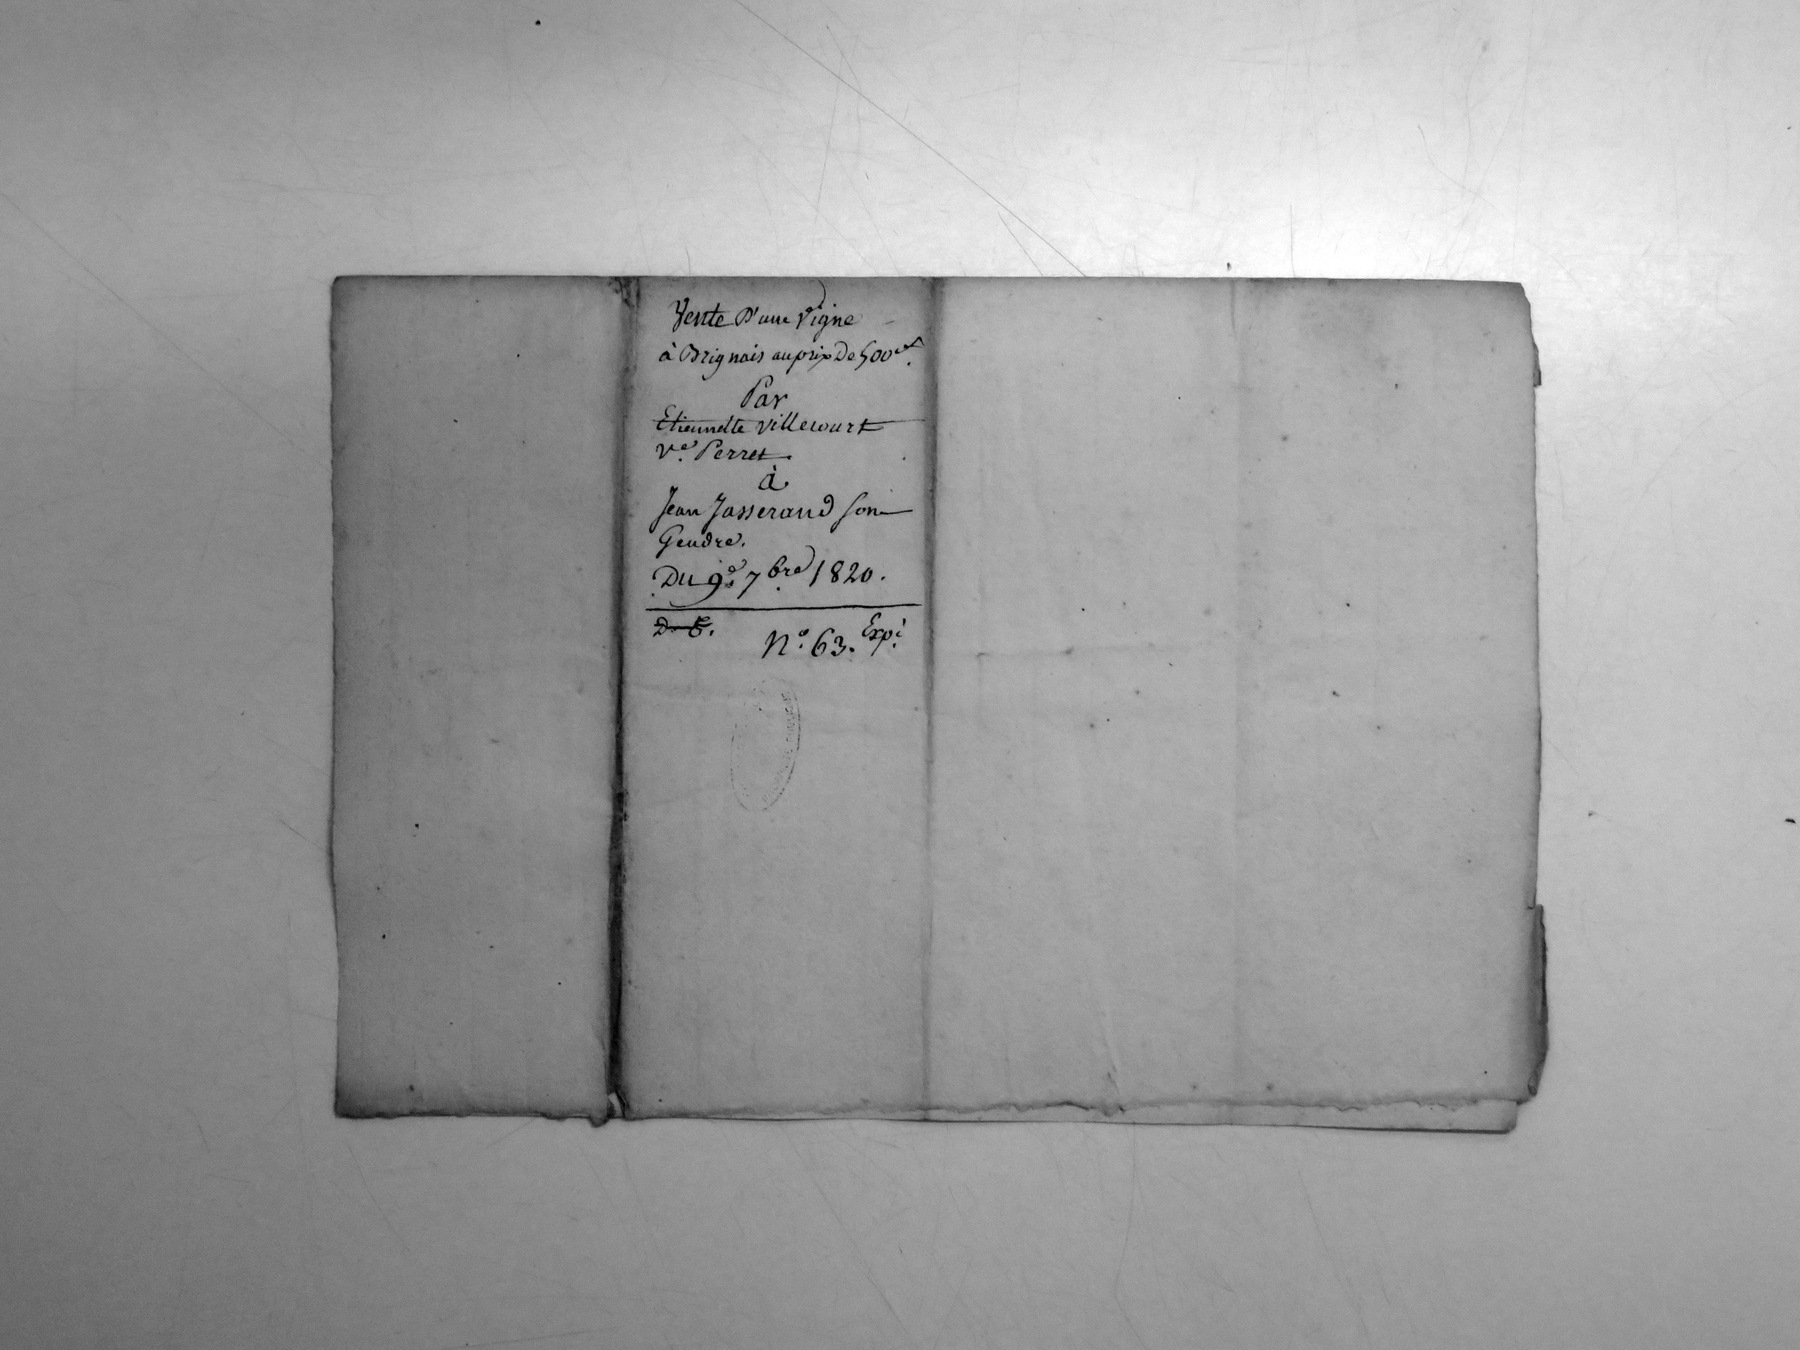 Vente D'une Vigne
à Brignais au prix De 500
Par
Etiennette Villecourt
Ve. Perret
à
Jean Jasserand son
Gendre.
Du 9e. 7bre 1820.
No. 63. Expi.